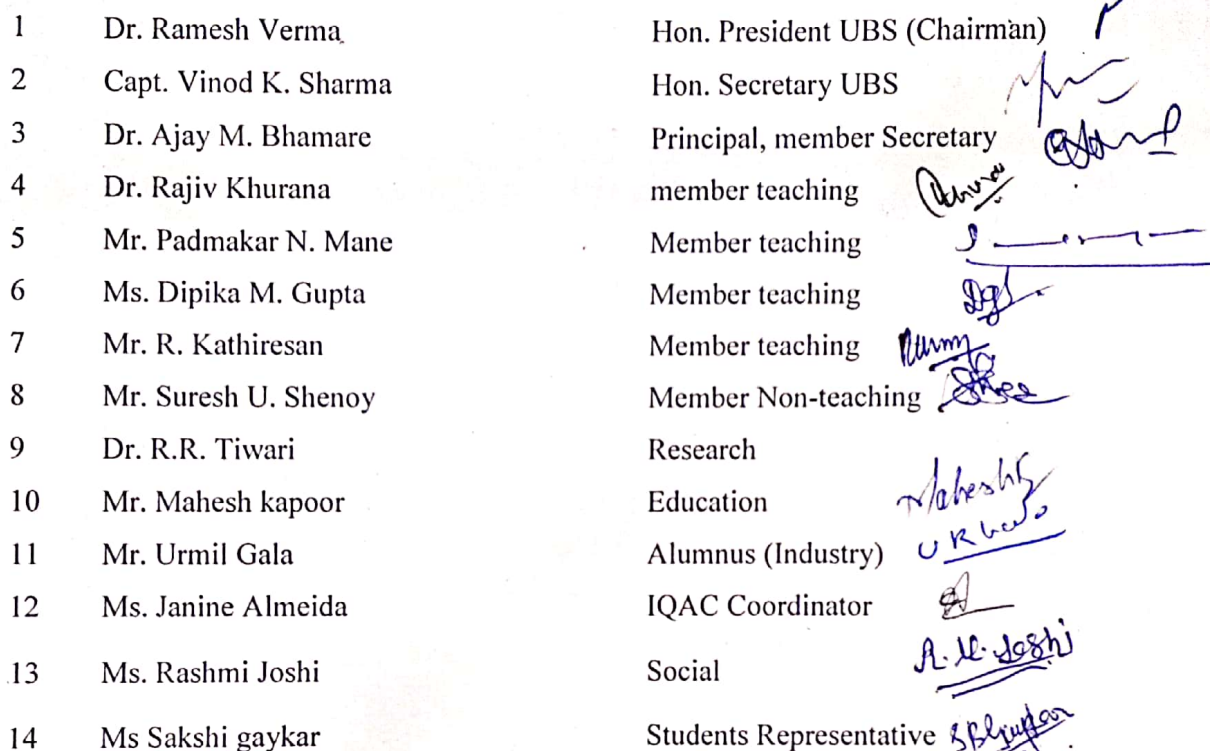 1 Dr. Ramesh Verma Hon. President UBS (Chairman)
2 Capt. Vinod K. Sharma Hon. Secretary UBS
3 Dr. Ajay M. Bhamare Principal, member Secretary
4 Dr. Rajiv Khurana member teaching
5 Mr. Padmakar N. Mane Member teaching
6 Ms. Dipika M. Gupta Member teaching
7 Mr. R. Kathiresan Member teaching
8 Mr. Suresh U. Shenoy Member Non-teaching
9 Dr. R.R. Tiwari Research
10 Mr. Mahesh kapoor Education
11 Mr. Urmil Gala Alumnus (Industry)
12 Ms. Janine Almeida IQAC Coordinator
13 Ms. Rashmi Joshi Social A. U. Joshi
14 Ms Sakshi gaykar Students Representative